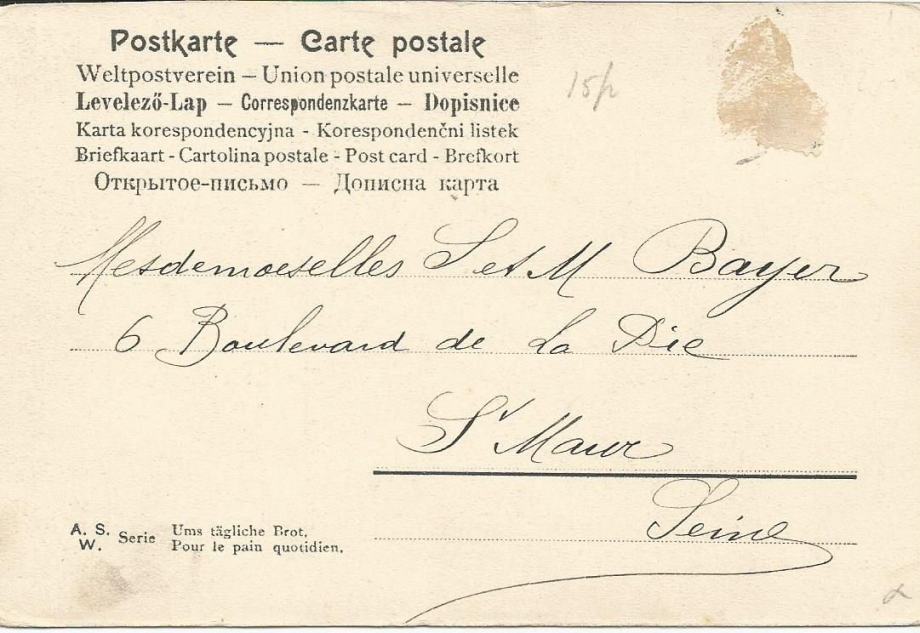 Postkarte — Carte postale
Weltpostverein – Union postale universelle
Levelező-Lap – Correspondenzkarte – Dopisnice
Karta korespondencyjna - Korespondenčni listek
Briefkaart - Cartolina postale - Post card - Brefkort
Открытое-письмо — Дописна карта
Mesdemoeselles S et M Bayer
6 Boulevard de La Pie
St Maur
Seine
A. S. W. Serie
Ums tägliche Brot.
Pour le pain quotidien.